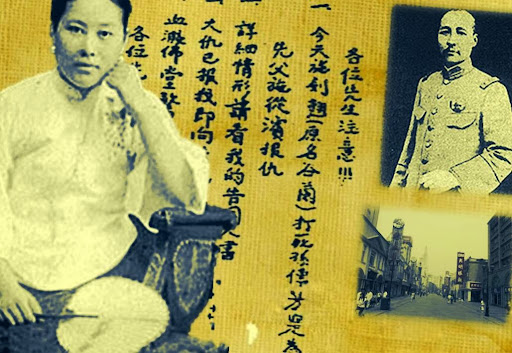 各位先生注意!!!
一 今天施剑翹(原名谷蘭)打死孫傳芳是為
先父施從濱報仇
詳細情形請看我的告國人書
大仇已報我即向
血濺佛堂驚
各位先